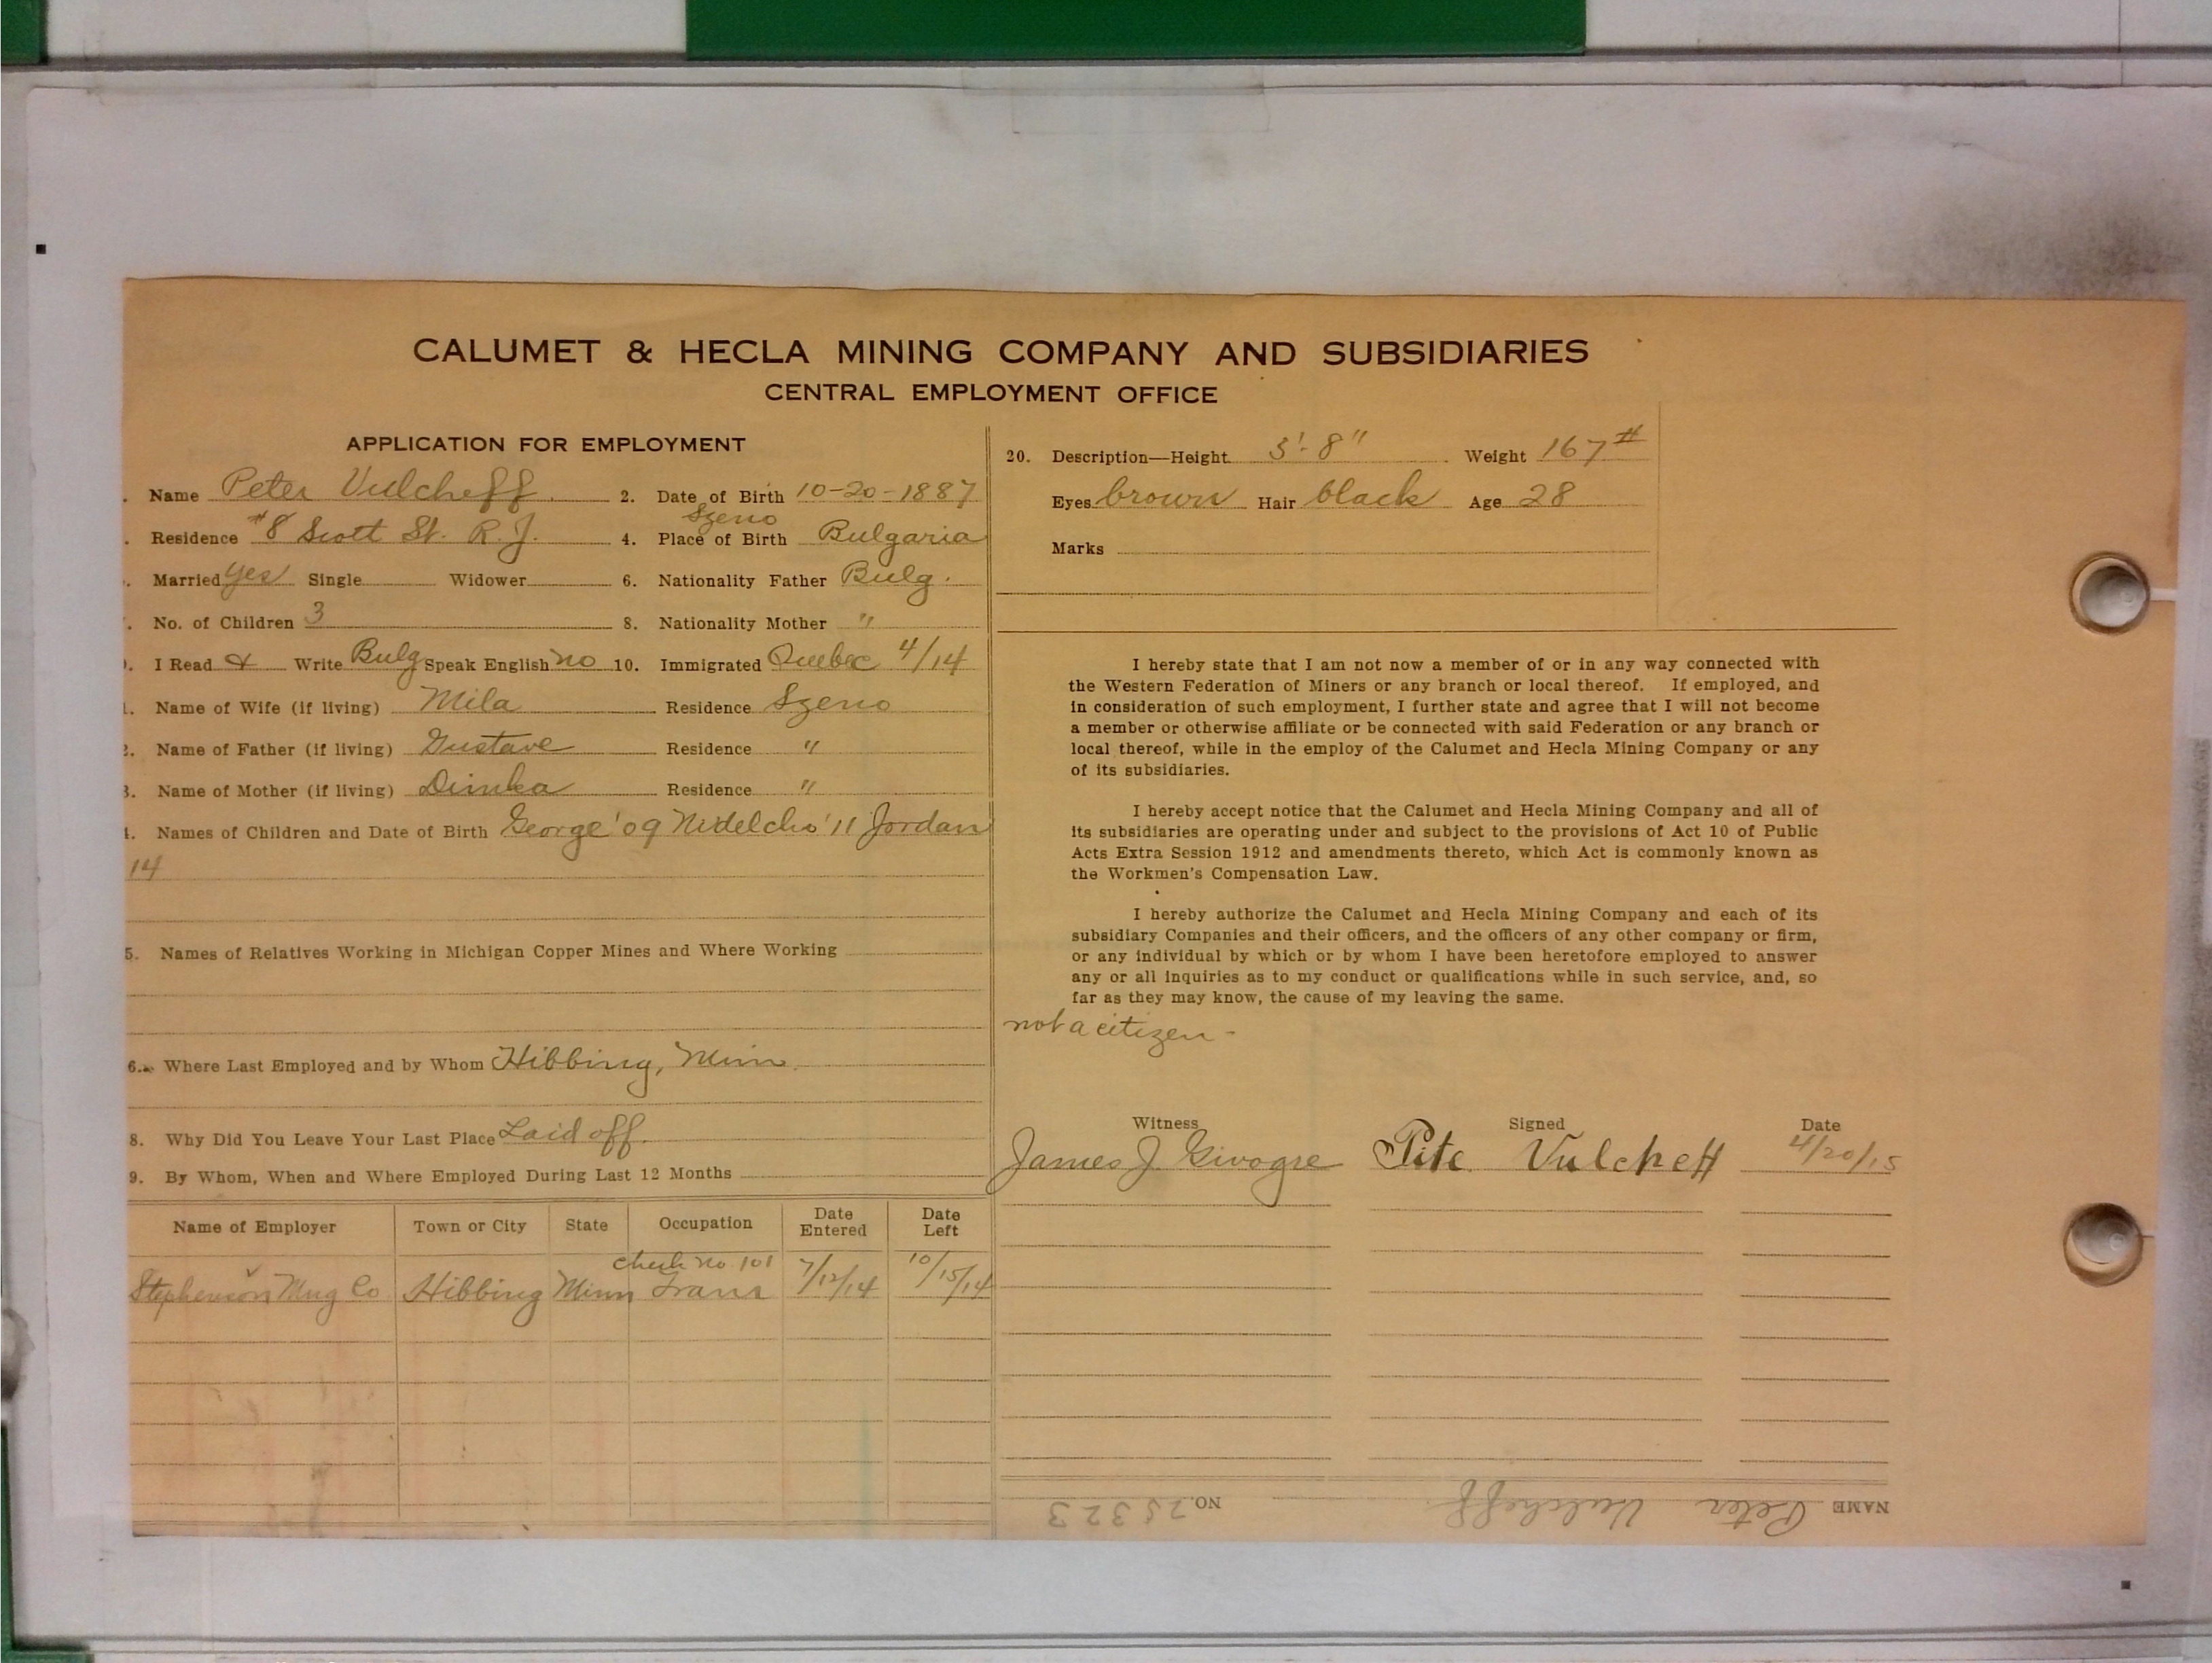 CALUMET & HECLA MINING COMPANY AND SUBSIDIARIES
CENTRAL EMPLOYMENT OFFICE
APPLICATION FOR EMPLOYMENT
. Name Peter Vulcheff 2. Date of Birth 10-20-1887
. Residence #8 Scott St. R.J. 4. Place of Birth Szeno Bulgaria
. Married yes Single Widower 6. Nationality Father Bulg.
. No. of Children 3 8. Nationality Mother "
. I Read & Write Bulg Speak English no 10. Immigrated Quebec 4/14
. Name of Wife (if living) Mila Residence Szeno
2. Name of Father (if living) Gustave Residence "
3. Name of Mother (if living) Dimka Residence "
4. Names of Children and Date of Birth George '09 Nedelcho '11 Jordan
14
5. Names of Relatives Working in Michigan Copper Mines and Where Working
6. Where Last Employed and by Whom Hibbing, Minn.
8. Why Did You Leave Your Last Place Laid off.
9. By Whom, When and Where Employed During Last 12 Months
Name of Employer Town or City State Occupation Date Entered Date Left
check no 101
Stephenson Mng Co Hibbing Minn Tram 7/12/14 10/15/14
20. Description—Height 5'-8" Weight 167#
Eyes brown Hair black Age 28
Marks
I hereby state that I am not now a member of or in any way connected with
the Western Federation of Miners or any branch or local thereof. If employed, and
in consideration of such employment, I further state and agree that I will not become
a member or otherwise affiliate or be connected with said Federation or any branch or
local thereof, while in the employ of the Calumet and Hecla Mining Company or any
of its subsidiaries.
I hereby accept notice that the Calumet and Hecla Mining Company and all of
its subsidiaries are operating under and subject to the provisions of Act 10 of Public
Acts Extra Session 1912 and amendments thereto, which Act is commonly known as
the Workmen's Compensation Law.
I hereby authorize the Calumet and Hecla Mining Company and each of its
subsidiary Companies and their officers, and the officers of any other company or firm,
or any individual by which or by whom I have been heretofore employed to answer
any or all inquiries as to my conduct or qualifications while in such service, and, so
far as they may know, the cause of my leaving the same.
not a citizen -
Witness Signed Date
James J. Pite Vulcheff 4/20/15
NAME Peter Vulcheff NO. 25323